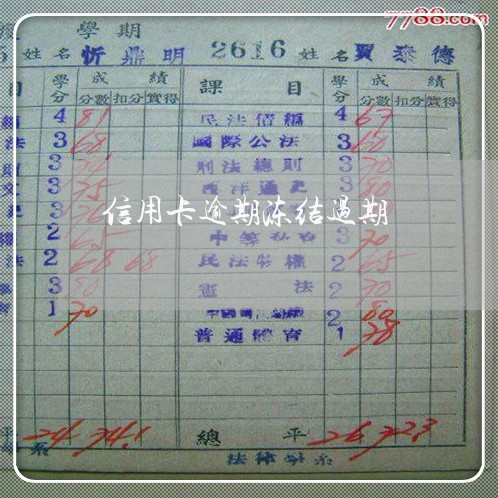 7788.com
學期
姓名 忻鼎明 2616 姓名 賈泰德
目 學分 成績 課目 學分 成績
分數 扣分 實得 分數 扣分 實得
4 81 民法債編 4 67
法 3 68 國際公法 3 60
3 刑法總則 3 70
3 75 西洋通史 3 80
信用卡逾期冻结過期
2 65 3 70
法 2 68 68 民法物權 2 65
3 80 憲法 2 70
1 70 2 80
普通體育 1 78
平 24 74.1 總平 26 72.3
系 法律學系